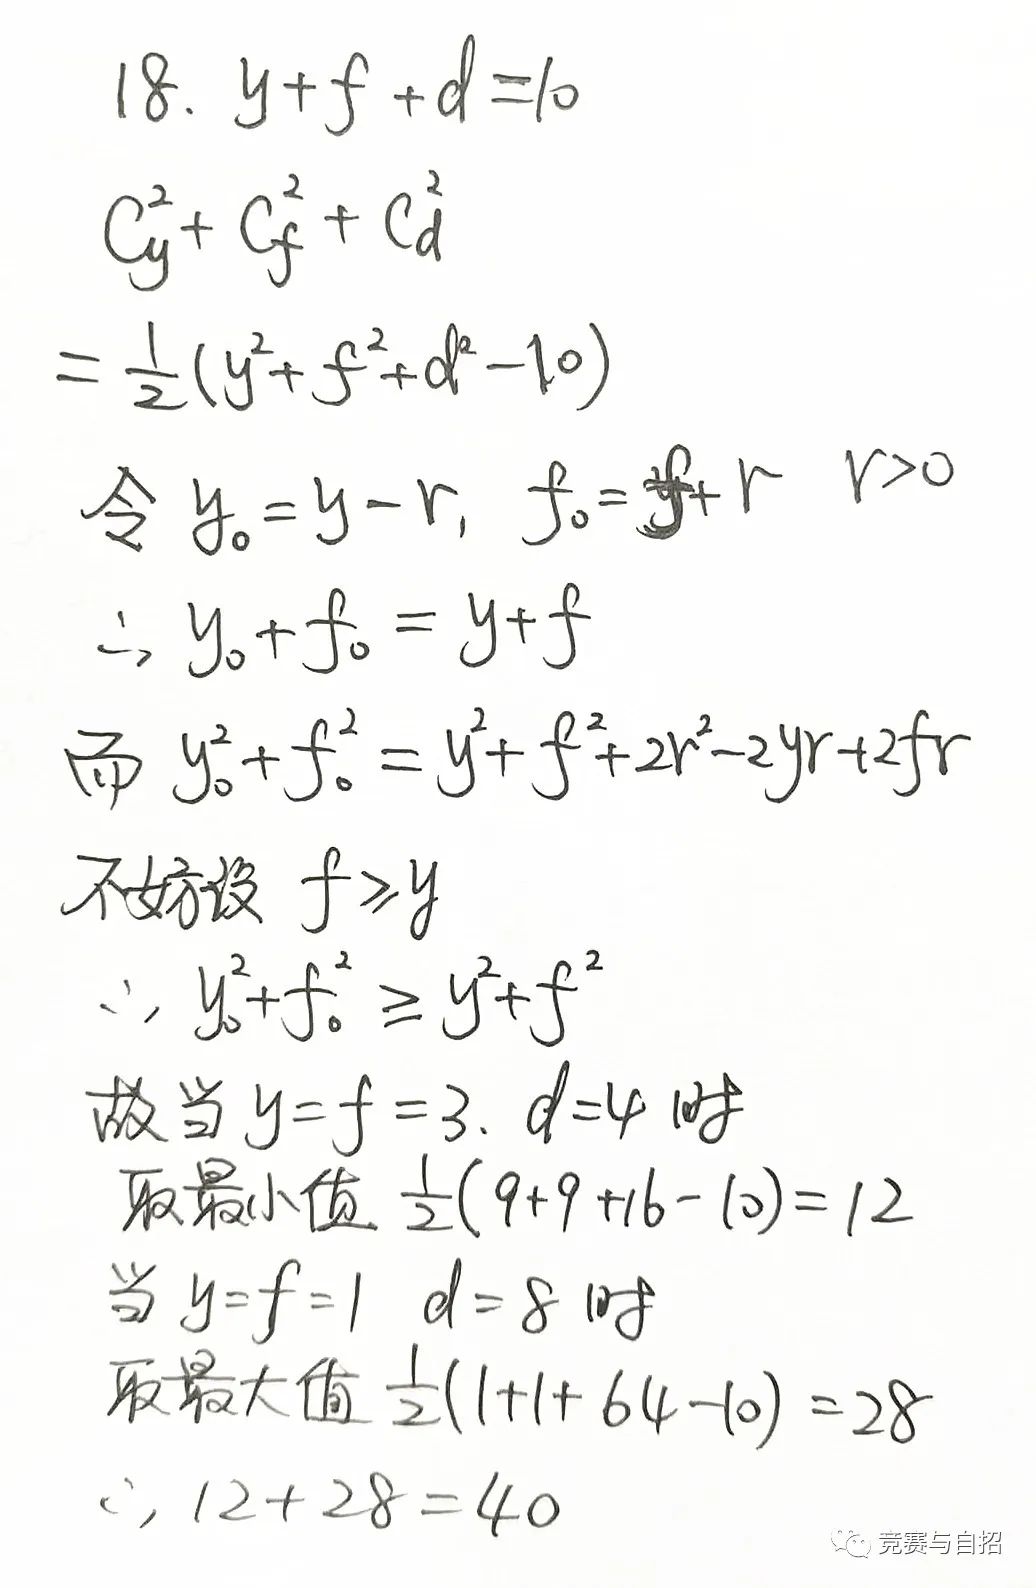 18. y+f+d=10
C_y^2+C_f^2+C_d^2
=\frac{1}{2}(y^2+f^2+d^2-10)
令 y_0=y-r, f_0=f+r r>0
∴ y_0+f_0=y+f
而 y_0^2+f_0^2=y^2+f^2+2r^2-2yr+2fr
不妨设 f≥y
∴ y_0^2+f_0^2≥y^2+f^2
故当 y=f=3. d=4 时
取最小值 \frac{1}{2}(9+9+16-10)=12
当 y=f=1 d=8 时
取最大值 \frac{1}{2}(1+1+64-10)=28
∴ 12+28=40
竞赛与自招